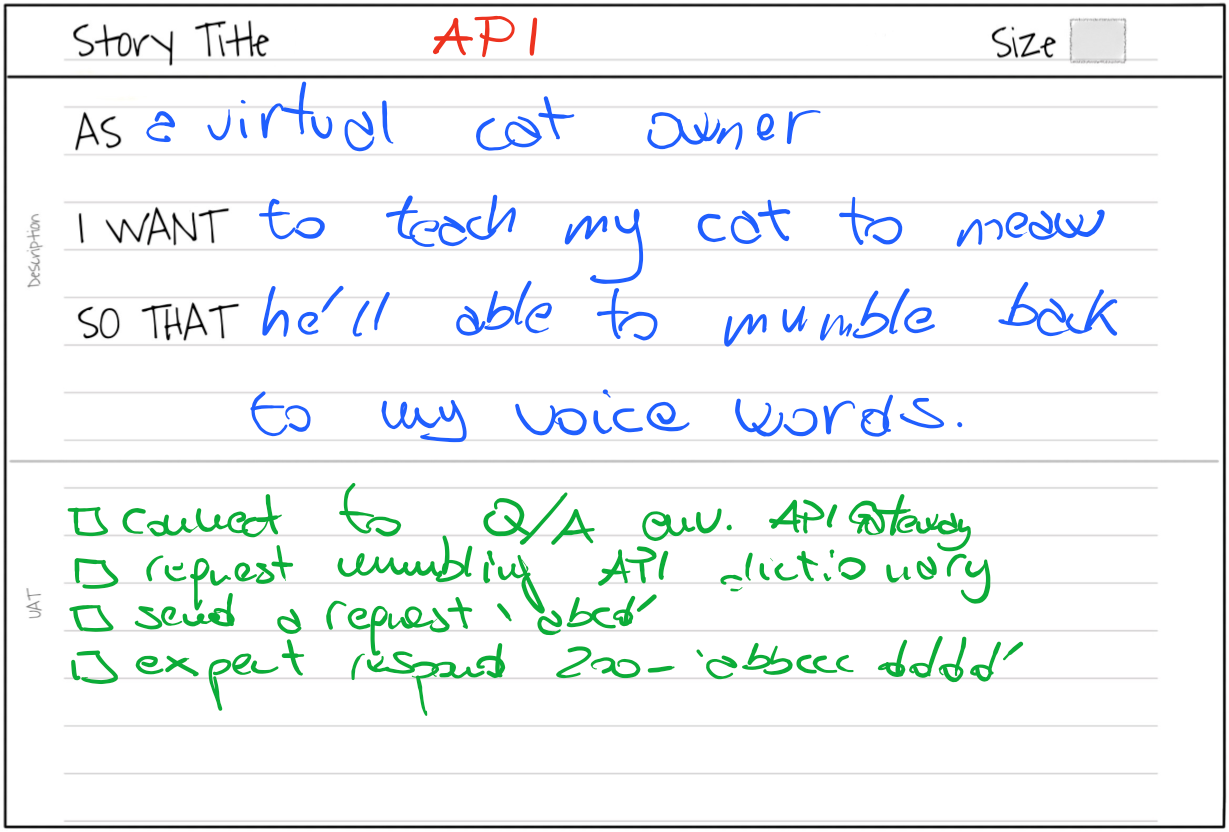 Story Title API Size
AS a virtual cat owner
I WANT to teach my cat to meaw
SO THAT he'll able to mumble back
to my voice words.
Description
connect to Q/A env. API Gateway
request mumbling API dictionary
send a request 'abcd'
expect respond 200- 'abbccc dddd'
UAT